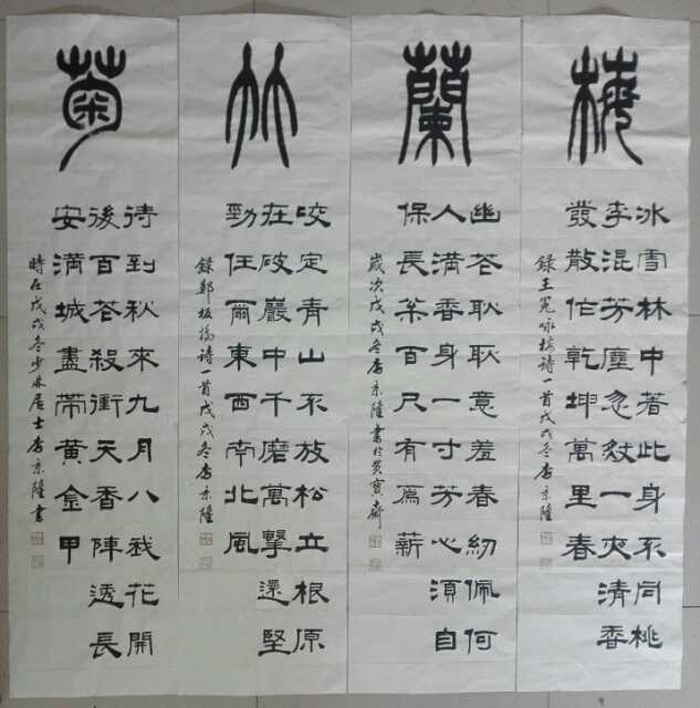 梅
冰雪林中著此身不同桃
李混芳塵忽然一夜清香
發散作乾坤萬里春
錄王冕咏梅詩一首戊戌冬李京隆
蘭
幽花耿耿意羞春紉佩何
人滿香身一寸芳心須自
保長枀百尺有為薪
歲次戊戌冬李京隆書於寶齋
竹
咬定青山不放松立根原
在破巖中千磨萬擊還堅
勁任爾東西南北風
錄鄭板橋詩一首戊戌冬李京隆
菊
待到秋來九月八我花開
後百花殺衝天香陣透長
安滿城盡帶黃金甲
時在戊戌冬少林居士李京隆書